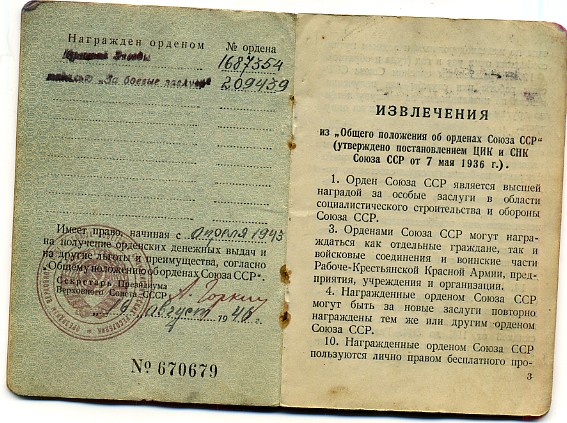 Награжден орденом
№ ордена
Красной Звезды
1687354
медалью „За боевые заслуги"
209439
Имеет право, начиная с апреля 1945
на получение орденских денежных выдач и
на другие льготы и преимущества, согласно
„Общему положению об орденах Союза ССР".
Секретарь Президиума
Верховного Совета СССР
А. Горкин
август 1946 г.
№ 670679
ИЗВЛЕЧЕНИЯ
из „Общего положения об орденах Союза ССР"
(утверждено постановлением ЦИК и СНК
Союза ССР от 7 мая 1936 г.).
1. Орден Союза ССР является высшей
наградой за особые заслуги в области
социалистического строительства и обороны
Союза ССР.
3. Орденами Союза ССР могут награ-
ждаться как отдельные граждане, так и
войсковые соединения и воинские части
Рабоче-Крестьянской Красной Армии, пред-
приятия, учреждения и организации.
4. Награжденные орденом Союза ССР
могут быть за новые заслуги повторно
награждены тем же или другим орденом
Союза ССР.
10. Награжденные орденом Союза ССР
пользуются лично правом бесплатного про-
3